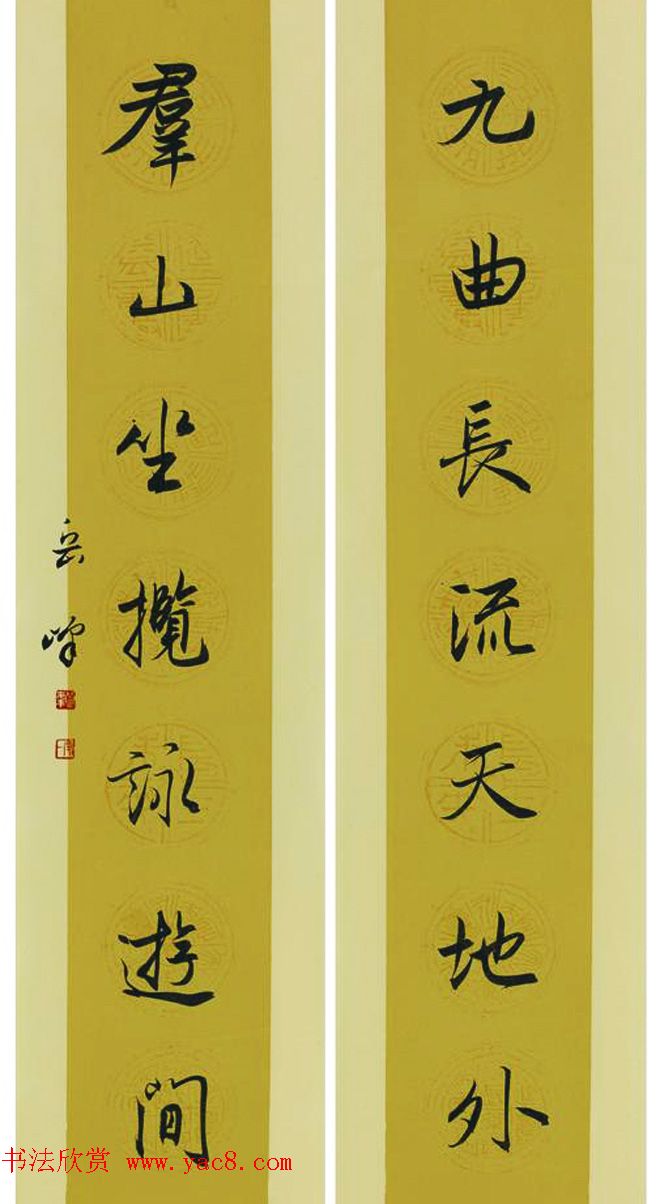 九曲長流天地外
羣山坐攬詠遊間
岳峰
书法欣赏 www.yac8.com